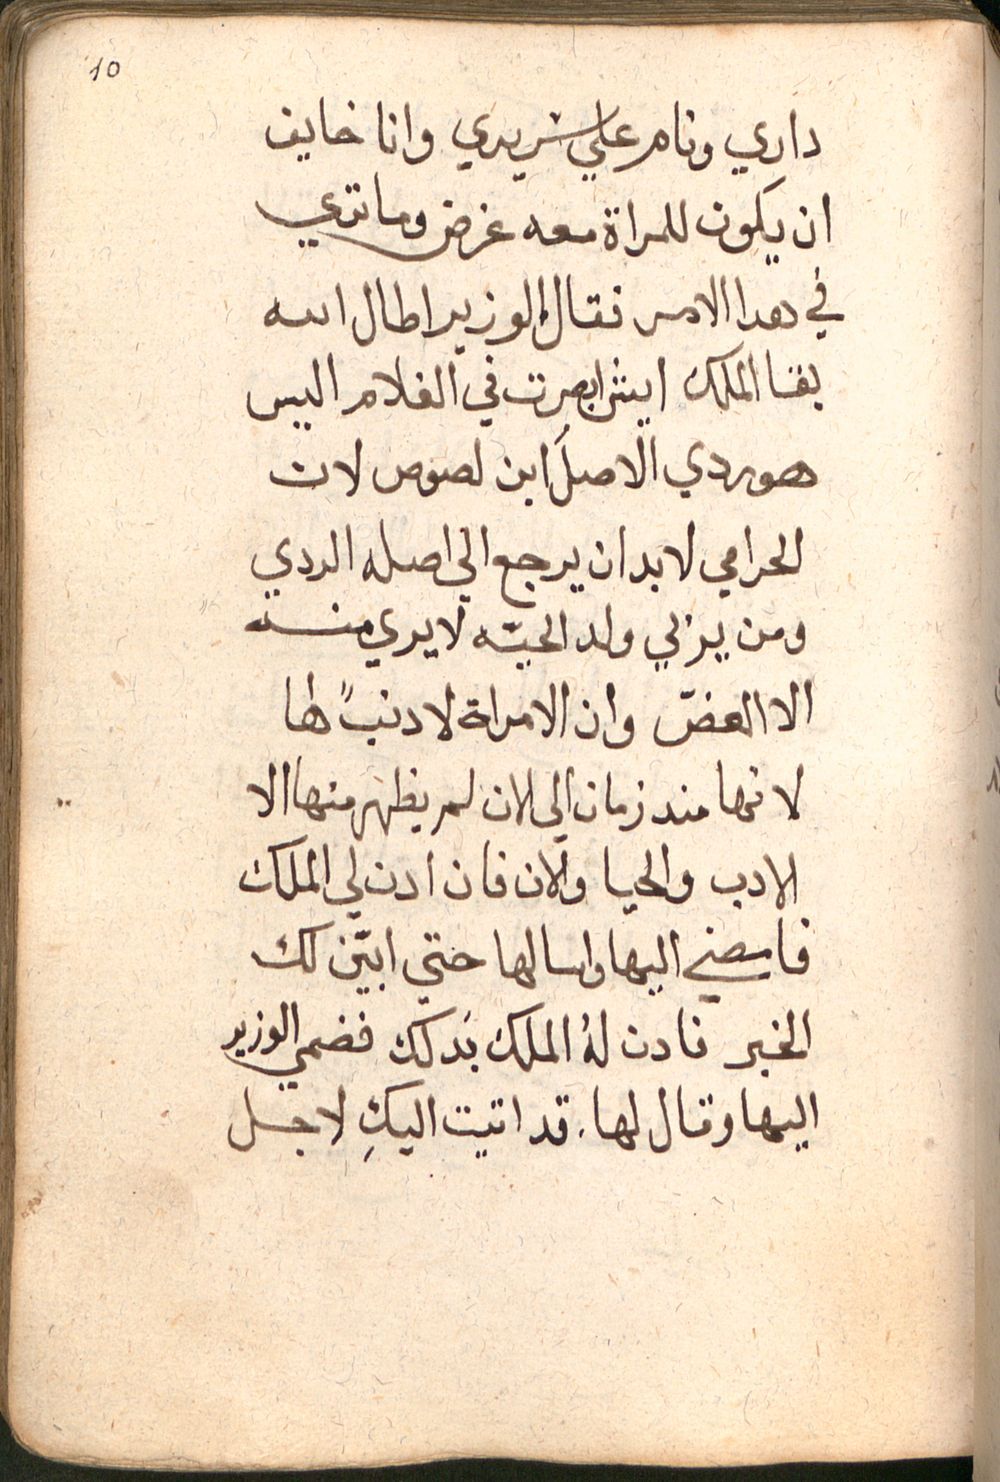 10
داري ونام علي سريري وانا خايف
ان يكون للمراة معه غرض وما تري
في هدا الامر فقال الوزير اطال الله
بقا الملك ايش ابصرت في الغلام اليس
هو ردي الاصل ابن لصوص لان
الحرامي لا بد ان يرجع الي اصله الردي
ومن يربي ولد الحيّه لا يري منه
الا العضّ وان الامراة لا دنبً لها
لانها مند زمان الي الان لم يظهر منها الا
الادب والحيا والان فان ادن لي الملك
فامضي اليها واسالها حتي ابيّن لك
الخبر فادن لهُ الملك بدلك فضمي الوزير
اليها وقال لها. قد اتيت اليكِ لاجل